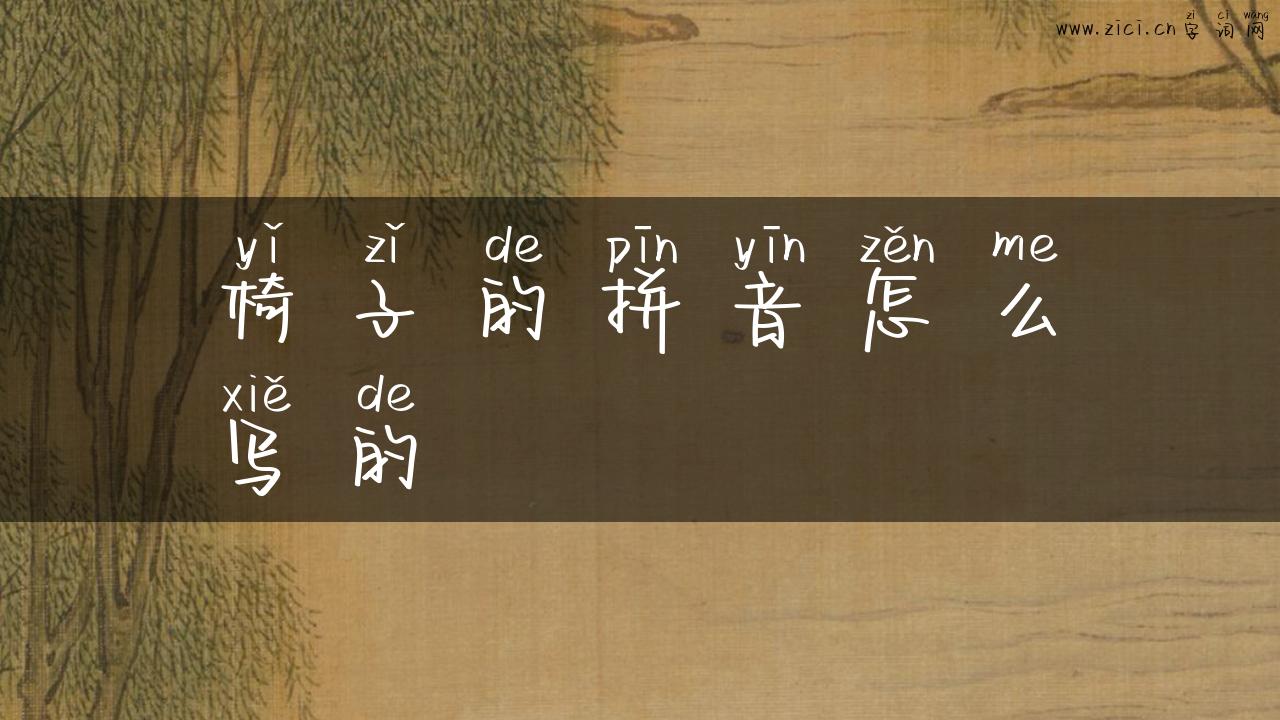 zì cí wǎng
www.zici.cn 字词网
yǐ zǐ de pīn yīn zěn me
椅子的拼音怎么
xiě de
写的